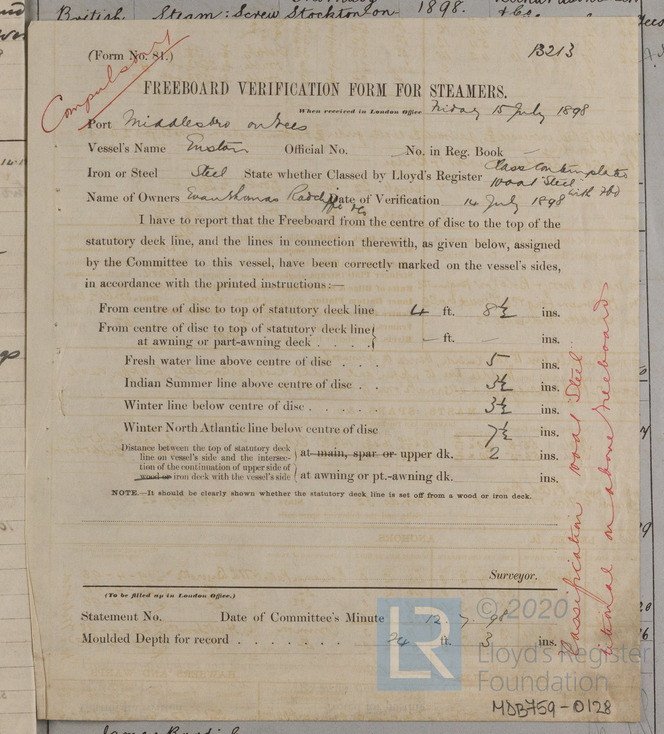 British Steam: Screw Stockton-on 1898.
& Co.
(Form No. 81.) 13213
Compulsory
FREEBOARD VERIFICATION FORM FOR STEAMERS.
When received in London Office Friday 15 July 1898
Port Middlesbro on Tees
Vessel's Name Official No. — No. in Reg. Book —
Iron or Steel Steel State whether Classed by Lloyd's Register Class Contemplates
100A1 "Steel"
with fbd
Name of Owners Evan Thomas Radcliffe & Co Date of Verification 14 July 1898
I have to report that the Freeboard from the centre of disc to the top of the
statutory deck line, and the lines in connection therewith, as given below, assigned
by the Committee to this vessel, have been correctly marked on the vessel's sides,
in accordance with the printed instructions:—
From centre of disc to top of statutory deck line 4 ft. 8½ ins.
From centre of disc to top of statutory deck line
at awning or part-awning deck . . . . — ft. — ins.
Fresh water line above centre of disc . . . 5 ins.
Indian Summer line above centre of disc . . 3½ ins.
Winter line below centre of disc . . . . . . 3½ ins.
Winter North Atlantic line below centre of disc 7½ ins.
Distance between the top of statutory deck
line on vessel's side and the intersec-
tion of the continuation of upper side of
wood or iron deck with the vessel's side
at main, spar or upper dk. 2 ins.
at awning or pt.-awning dk. ins.
NOTE.—It should be clearly shown whether the statutory deck line is set off from a wood or iron deck.
Surveyor.
(To be filled up in London Office.)
Statement No. Date of Committee's Minute 12.7.98
Moulded Depth for record . . . . . . . 24 ft. 3 ins.
Classification 100A1 "Steel"
on above freeboards
LR
© 2020
Lloyd's Register
Foundation
MDB759-0128